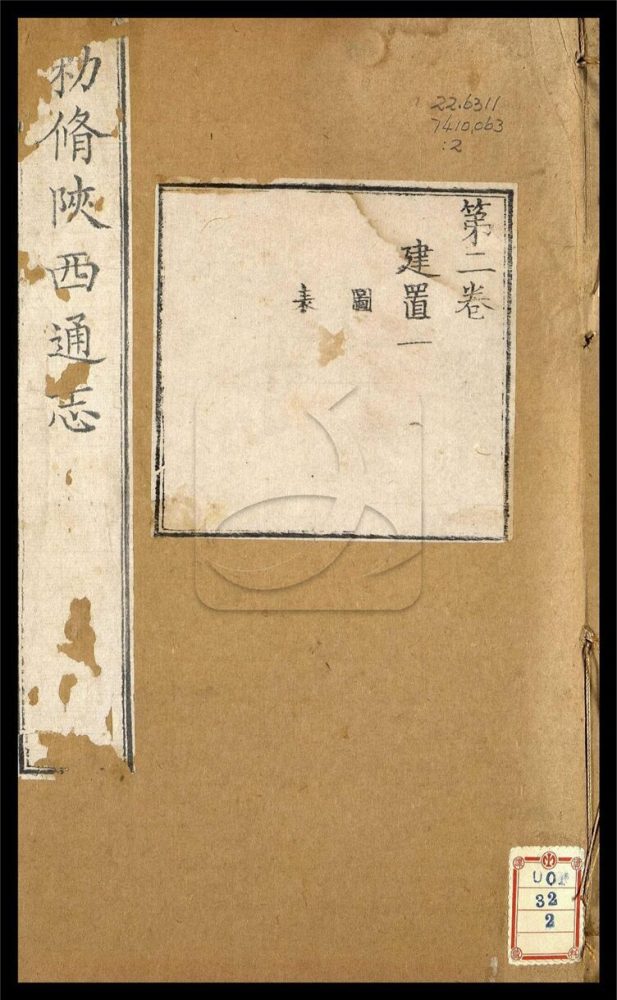 22.6311
7410.063
:2
第二卷
建置一
圖
表
脩陝西通志
32
2